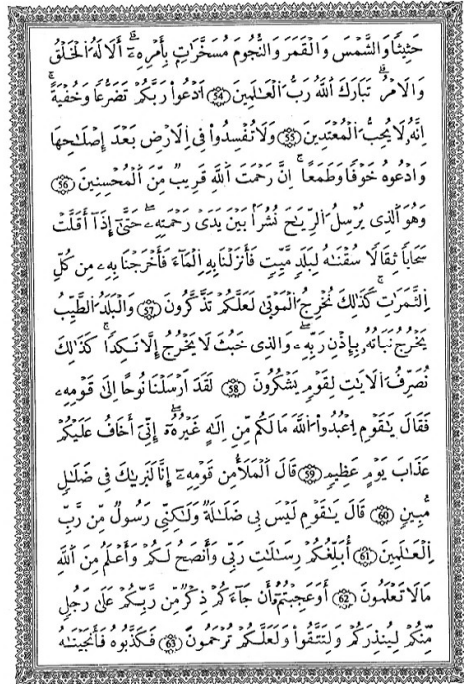 حَثِيثًا وَالشَّمْسَ وَالْقَمَرَ وَالنُّجُومَ مُسَخَّرَاتٍ بِأَمْرِهِۦٓ أَلَا لَهُ الْخَلْقُ
وَالَامْرُ تَبَارَكَ اللَّهُ رَبُّ الْعَالَمِينَ 54 اَدْعُوا رَبَّكُمْ تَضَرُّعًا وَخُفْيَةً
اِنَّهُ لَا يُحِبُّ الْمُعْتَدِينَ 55 وَلَا تُفْسِدُوا فِي الَارْضِ بَعْدَ إِصْلَاحِهَا
وَادْعُوهُ خَوْفًا وَطَمَعًا اِنَّ رَحْمَتَ اللَّهِ قَرِيبٌ مِّنَ الْمُحْسِنِينَ 56
وَهُوَ الَّذِي يُرْسِلُ الرِّيَاحَ نُشُرًا بَيْنَ يَدَيْ رَحْمَتِهِۦ حَتَّىٰٓ إِذَآ أَقَلَّتْ
سَحَابًا ثِقَالًا سُقْنَاهُ لِبَلَدٍ مَّيِّتٍ فَأَنزَلْنَا بِهِ الْمَآءَ فَأَخْرَجْنَا بِهِۦ مِن كُلِّ
اِلثَّمَرَاتِ كَذَٰلِكَ نُخْرِجُ الْمَوْتَىٰ لَعَلَّكُمْ تَذَّكَّرُونَ 57 وَالْبَلَدُ الطَّيِّبُ
يَخْرُجُ نَبَاتُهُ بِإِذْنِ رَبِّهِۦ وَالَّذِي خَبُثَ لَا يَخْرُجُ إِلَّا نَكِدًا كَذَٰلِكَ
نُصَرِّفُ الَايَاتِ لِقَوْمٍ يَشْكُرُونَ 58 لَقَدَ اَرْسَلْنَا نُوحًا اِلَىٰ قَوْمِهِۦ
فَقَالَ يَاقَوْمِ اِعْبُدُوا اللَّهَ مَا لَكُم مِّنِ اِلَٰهٍ غَيْرُهُۥٓ إِنِّيَ أَخَافُ عَلَيْكُمْ
عَذَابَ يَوْمٍ عَظِيمٍ 59 قَالَ الْمَلَأُ مِن قَوْمِهِۦٓ إِنَّا لَنَرَاكَ فِي ضَلَالٍ
مُّبِينٍ 60 قَالَ يَاقَوْمِ لَيْسَ بِي ضَلَالَةٌ وَلَٰكِنِّي رَسُولٌ مِّن رَّبِّ
اِلْعَالَمِينَ 61 أُبَلِّغُكُمْ رِسَالَاتِ رَبِّي وَأَنصَحُ لَكُمْ وَأَعْلَمُ مِنَ اللَّهِ
مَا لَا تَعْلَمُونَ 62 أَوَعَجِبْتُمُۥٓ أَن جَآءَكُمْ ذِكْرٌ مِّن رَّبِّكُمْ عَلَىٰ رَجُلٍ
مِّنكُمْ لِيُنذِرَكُمْ وَلِتَتَّقُوا وَلَعَلَّكُمْ تُرْحَمُونَ 63 فَكَذَّبُوهُ فَأَنجَيْنَاهُ